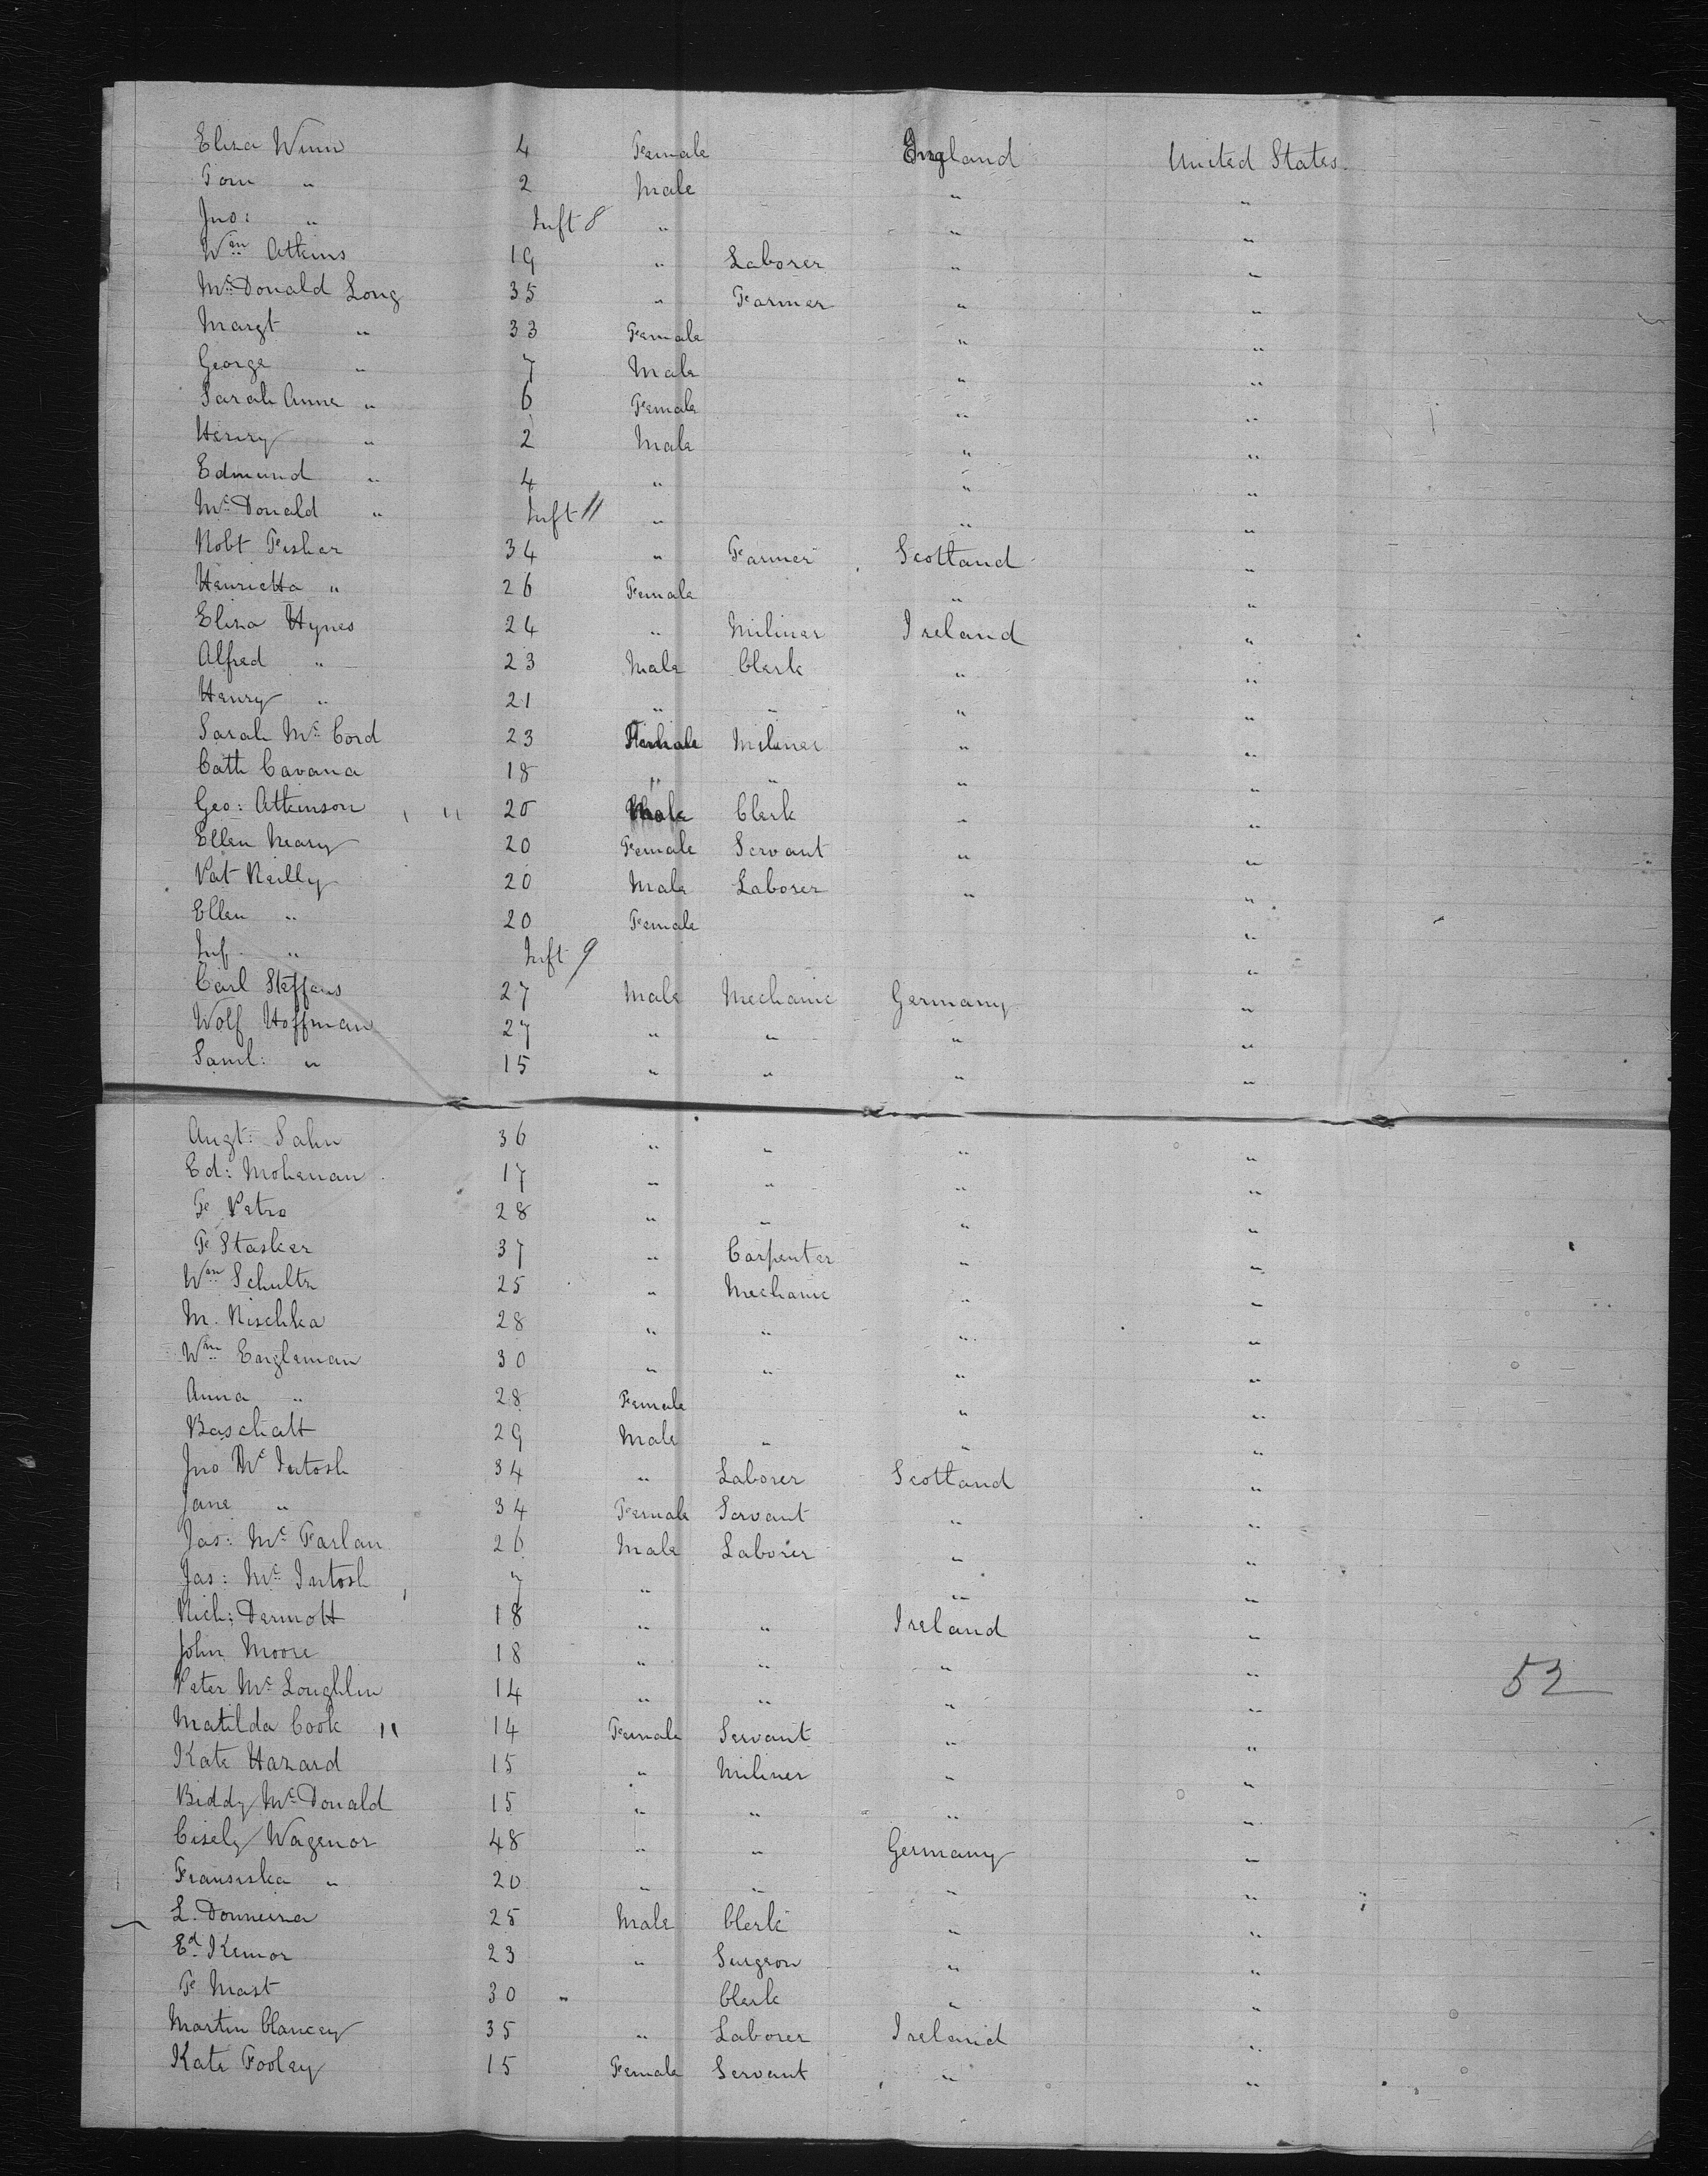 Eliza Winn 4 Female England United States.
Tom " 2 Male " "
Jno: " Inft 8 " " "
Wm Atkins 19 " Laborer " "
McDonald Long 35 " Farmer " "
Margt " 33 Female " "
George " 7 Male " "
Sarah Anne " 6 Female " "
Henry " 2 Male " "
Edmund " 4 " " "
McDonald " Inft 11 " " "
Robt Fisher 34 " Farmer Scotland "
Henrietta " 26 Female " "
Eliza Hynes 24 " Miliner Ireland "
Alfred " 23 Male Clerk " "
Henry " 21 " " " "
Sarah McCord 23 Female Miliner " "
Cath Cavana 18 " " " "
Geo: Atkinson " 20 Male Clerk " "
Ellen Neary 20 Female Servant " "
Pat Reilly 20 Male Laborer " "
Ellen " 20 Female "
Inf " Inft 9 "
Carl Steffens 27 Male Mechanic Germany "
Wolf Hoffman 27 " " " "
Saml: " 15 " " " "
Augt: Sahn 36 " " " "
Ed: Mohenan 17 " " " "
F Petro 28 " " " "
F Stasker 37 " Carpenter " "
Wm Schultz 25 " Mechanic " "
M. Nischka 28 " " " "
Wm Engleman 30 " " " "
Anna " 28 Female " "
Baschatt 29 Male " " "
Jno McIntosh 34 " Laborer Scotland "
Jane " 34 Female Servant " "
Jas: McFarlan 26 Male Laborer " "
Jas: McIntosh 7 " " "
Rich: Dermott 18 " " Ireland "
John Moore 18 " " " "
52
Peter McLoughlin 14 " " " "
Matilda Cook " 14 Female Servant " "
Kate Hazard 15 " Miliner " "
Biddy McDonald 15 " " " "
Cisely Wagenor 48 " " Germany "
Fransiska " 20 " " " "
L. 25 Male Clerk " "
Ed Kemor 23 " Surgeon " "
F Mast 30 " Clerk " "
Martin Clancey 35 " Laborer Ireland "
Kate Fooley 15 Female Servant " "